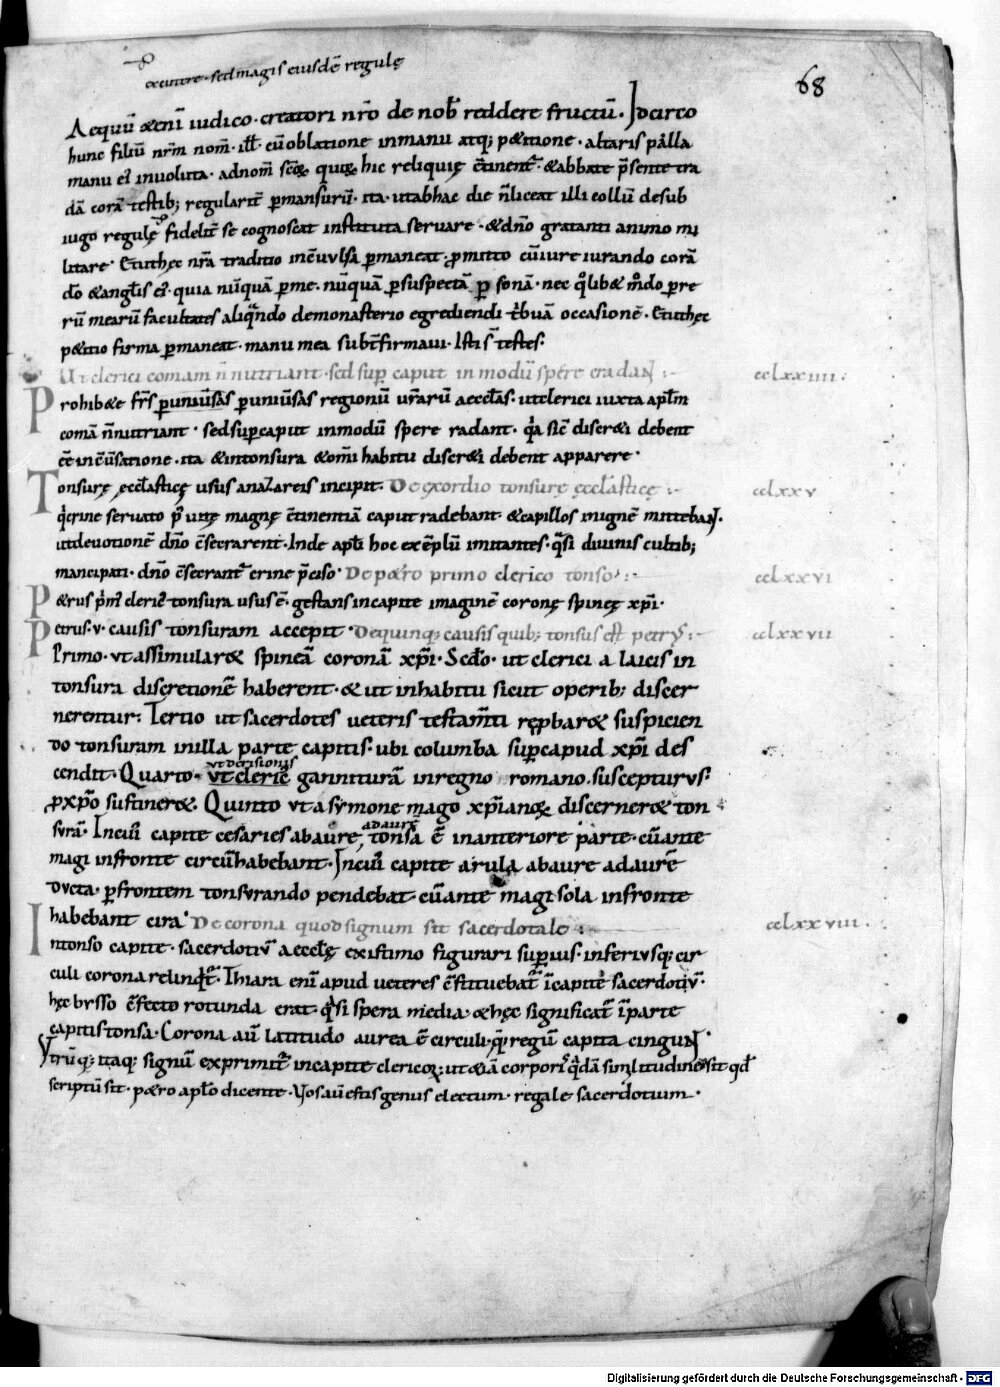 excutere · sed magis eiusdē regulę
68
Aequū &enī iudico · creatori nr̄o de nob̄ reddere fructū · Idcirco
hunc filiū nr̄m nom̄ · ill̄ · cū oblatione in manu atq; p&itione · altaris palla
manu ei' inuoluta · ad nom̄ scōꝝ quoꝝ hic reliquię c̄tinent᷑ · & abbate p̄sente tra
dā corā testib; regularit̄ ꝑmansurū · ita · ut ab hac die n̄ liceat illi collū de sub
iugo regulę fidelit̄ se cognoscat instituta seruare · & dn̄o gratanti animo mi
litare · Et ut hęc nr̄a traditio inc̄uulsa ꝑmaneat · ꝓmitto cū iure iurando corā
dō & angl̄is ei' · quia nūquā ꝑ me · nūquā ꝑ suspectā ꝑsonā · nec qolib& modo ꝑ re
rū mearū facultates aliqndo de monasterio egrediendi tbuā occasionē · Et ut hęc
p&itio firma ꝑmaneat · manu mea subt̄ firmaui · Isti s̄ testes ·
Ut clerici comam n̄ nutriant · sed suꝑ caput in modū spere eradaɴt · cclxxiiii ·
Prohib&e fr̄s ꝑ uniū̄sas ꝑ uniū̄sas regionū ur̄arū aeccl̄as · ut clerici iuxta apl̄m
comā n̄ nutriant · sed suꝑ caput in modū spere radant · qa sic̄ discr&i debent
ēē in c̄ū̄satione · ita & in tonsura & om̄i habitu discr&i debent apparere ·
Tonsurę ęccl̄asticę usus a nazareis incipit · De exordio tonsurę ęccl̄asticę · cclxxv
qi crine seruato p̄ uitę magnę c̄tinentiā caput radebant · & capillos in ignē mittebaɴt ·
ut deuotionē dn̄o c̄secrarent · Inde apl̄i hoc exēplū imitantes · qasi diuinis cultib;
mancipati · dn̄o c̄secrant᷑ crine p̄ciso · De p&ro primo clerico tonso · cclxxvi
P&rus pim' cleric' tonsura usus ē · gestans in capite imaginē coronę spineę xp̄i ·
Petrus · v · causis tonsuram accepit · De quinq; causis quib; tonsus est petrus · cclxxvii
Primo · ut assimular& spineā coronā xp̄i · Scd̄o · ut clerici a laicis in
tonsura discretionē haberent · & ut in habitu sicut operib; discer
nerentur : Tertio ut sacerdotes ueteris testam̄ti reꝓbar& suspicien
do tonsuram in illa parte capitis · ubi columba suꝑ capud xp̄i des
cendit · Quarto · ut cleric' ganniturā in regno romano · suscepturus
ut derisionis
ꝓ xp̄o sustiner& · Quinto ut a symone mago xp̄ianoꝝ discerner& ton
sura · In cui' capite cesaries ab aure, ad aurē tonsa ē in anteriore parte · cū ante
magi in fronte circū habebant · In cui' capite arula ab aure ad aurē
ducta · ꝑ frontem tonsurando pendebat · cū ante magi sola in fronte
habebant cira · De corona quod signum sit sacerdotale · cclxxviii ·
Intonso capite · sacerdotiū aeccl̄ę existimo figurari suꝑius · inferiusq; cir
culi corona relinqit᷑ · Thiara enī apud ueteres c̄stituebat᷑ ī capite sacerdotū ·
hęc bysso c̄fecto rotunda erat · qasi spera media · & hęc significat᷑ ī parte
capitis tonsa · Corona aū latitudo aurea ē circuli · quę regū capita cinguɴt ·
Utrūq; itaq; signū exprimit᷑ in capite clericoꝝ · ut &iā corpori' qadā similitudine sit qd
scriptū sit · p&ro apl̄o dicente · Vos aū estis genus electum · regale sacerdotium ·
Digitalisierung gefördert durch die Deutsche Forschungsgemeinschaft - DFG